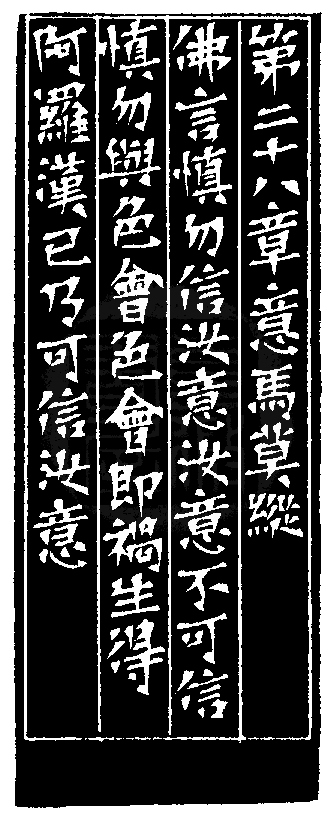 第二十八章意馬莫縱
佛言慎勿信汝意汝意不可信
慎勿與色會色會即禍生得
阿羅漢已乃可信汝意